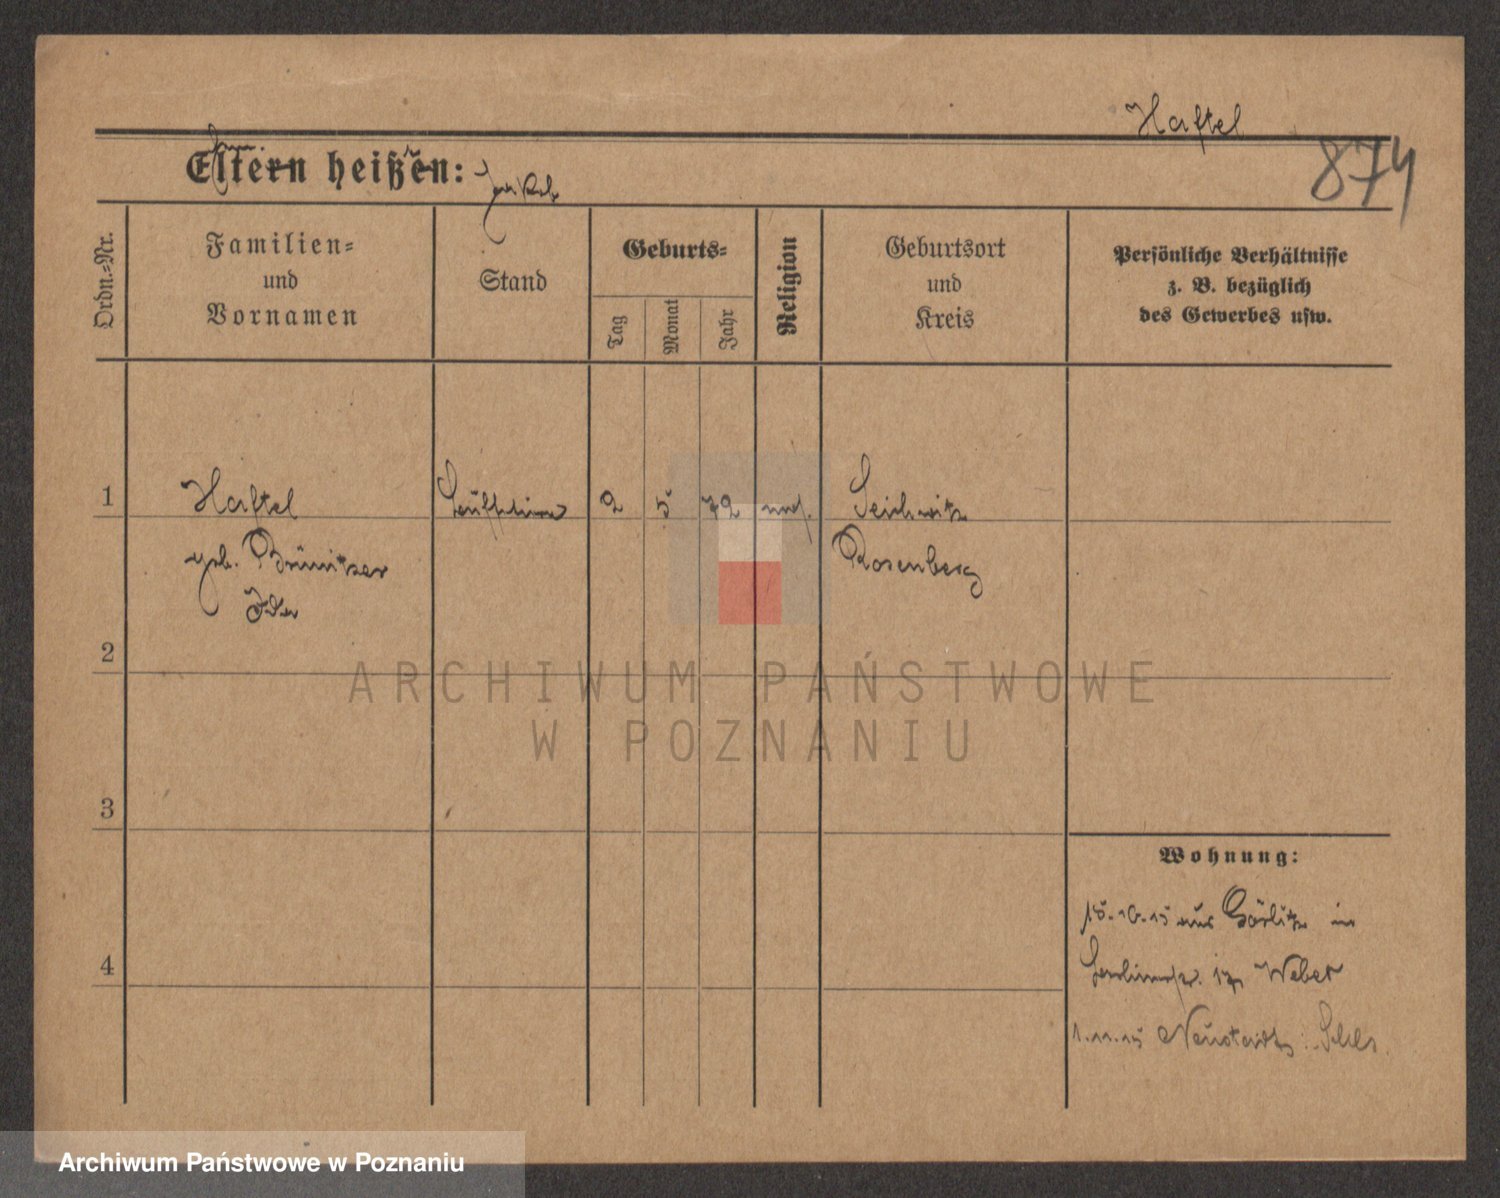 Haftel
874
Eltern heißen: Jakob
Ordn.=Nr.
Familien=
und
Vornamen
Stand
Geburts=
Tag
Monat
Jahr
Religion
Geburtsort
und
Kreis
Persönliche Verhältnisse
z. B. bezüglich
des Gewerbes usw.
1
Haftel
2 5 72
Seichwitz
geb.
Rosenberg
Ida
2
ARCHIWUM PAŃSTWOWE
W POZNANIU
3
Wohnung:
15.10.15 aus Görlitz in
4
17 Weber
1.11.15 Neustadt
Archiwum Państwowe w Poznaniu